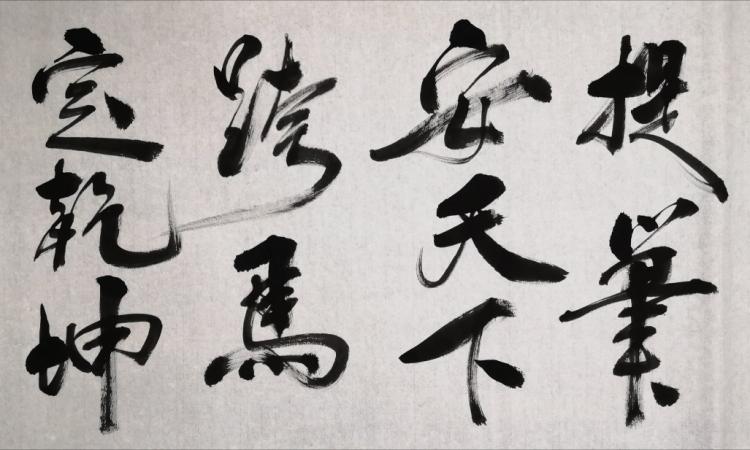 提筆
安天下
跨馬
定乾坤